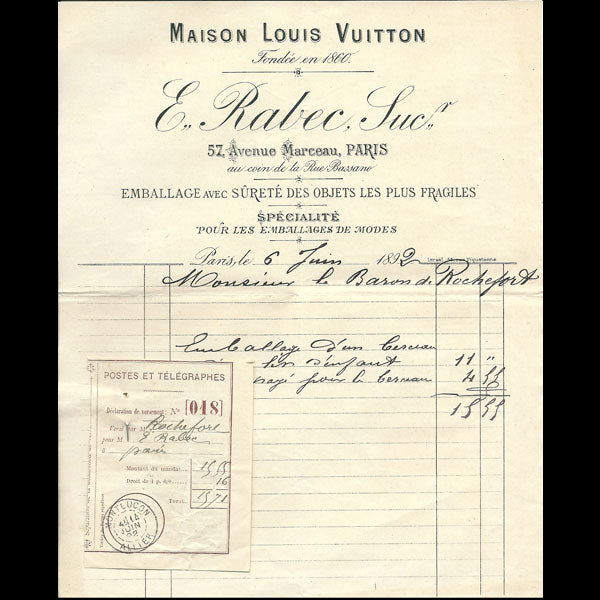 MAISON LOUIS VUITTON
Fondée en 1860.
E. Rabec, Sucr.
57, Avenue Marceau, PARIS
au coin de la Rue Bassano
EMBALLAGE AVEC SÛRETÉ DES OBJETS LES PLUS FRAGILES
SPÉCIALITÉ
POUR LES EMBALLAGES DE MODES
Paris, le 6 Juin 1892
Monsieur le Baron de Rochefort
Emballage d'un berceau
lin d'enfant 11 "
pour le berceau 4 55
15 55
POSTES ET TÉLÉGRAPHES
Déclaration de versement: No [048]
Versé par M Rochefort
pour M E Rabec
à paris
Montant du mandat... 15,55
Droit de 1 p. 0/0... 16
TOTAL. 15,71
MONTLUCON
JUIN
92
ALLIER